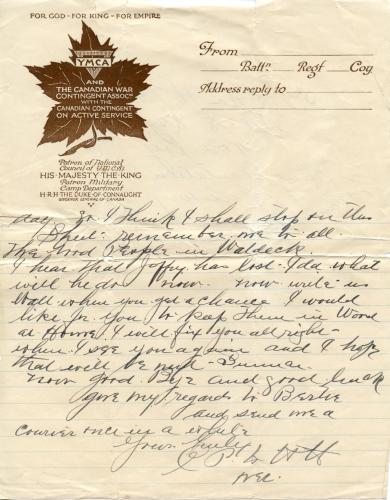 FOR GOD - FOR KING - FOR EMPIRE
YMCA
AND
THE CANADIAN WAR
CONTINGENT ASSOCN
WITH THE
CANADIAN CONTINGENT
ON ACTIVE SERVICE
Patron of National
Council of Y.M.C.A.
HIS MAJESTY THE KING
Patron Military
Camp Department
H·R·H·THE DUKE OF CONNAUGHT
GOVERNOR GENERAL OF CANADA
From
Battn. Regt. Coy
Address reply to
day. I think I shall stop on this
Sheet remember me to all
the good People in Waldeck.
I hear that has lost Ida what
will he do now. now write us
Walt when you get a chance I would
like for you to keep them in Wood
at Home I will fix you all right
when I see you again and I hope
that will be next Summer
now good Bye and good luck
give my regards to Bertie
and send me a
Courier once in a while
Yours Truly